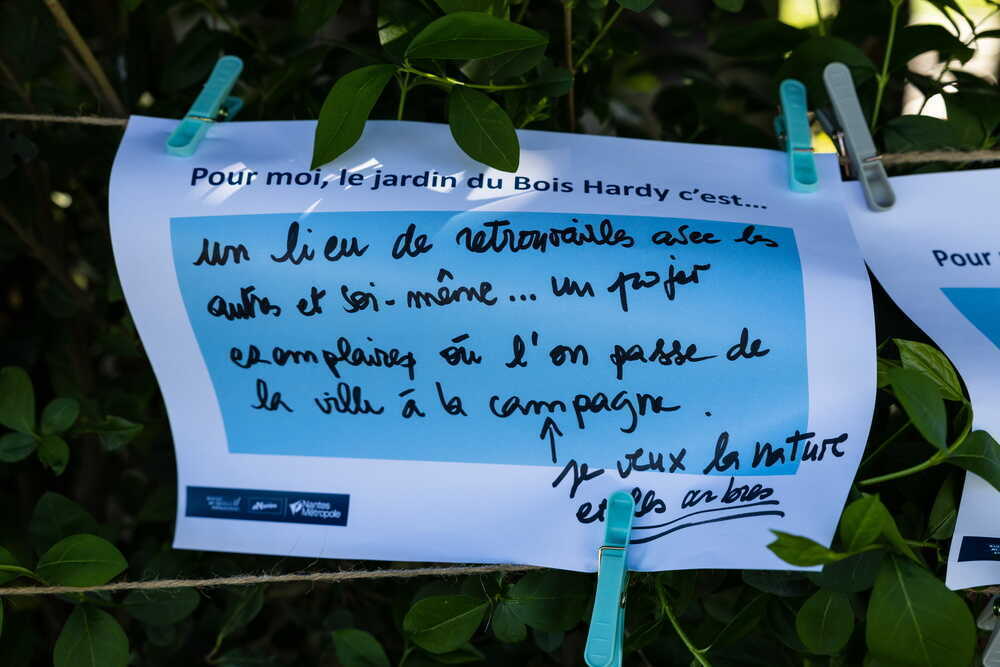 Pour moi, le jardin du Bois Hardy c'est...
un lieu de retrouvailles avec les
autres et soi-même... un projet
exemplaire, où l'on passe de
la ville à la campagne.
↑
je veux la nature
et les arbres
Nantes
Nantes
Métropole
Pour